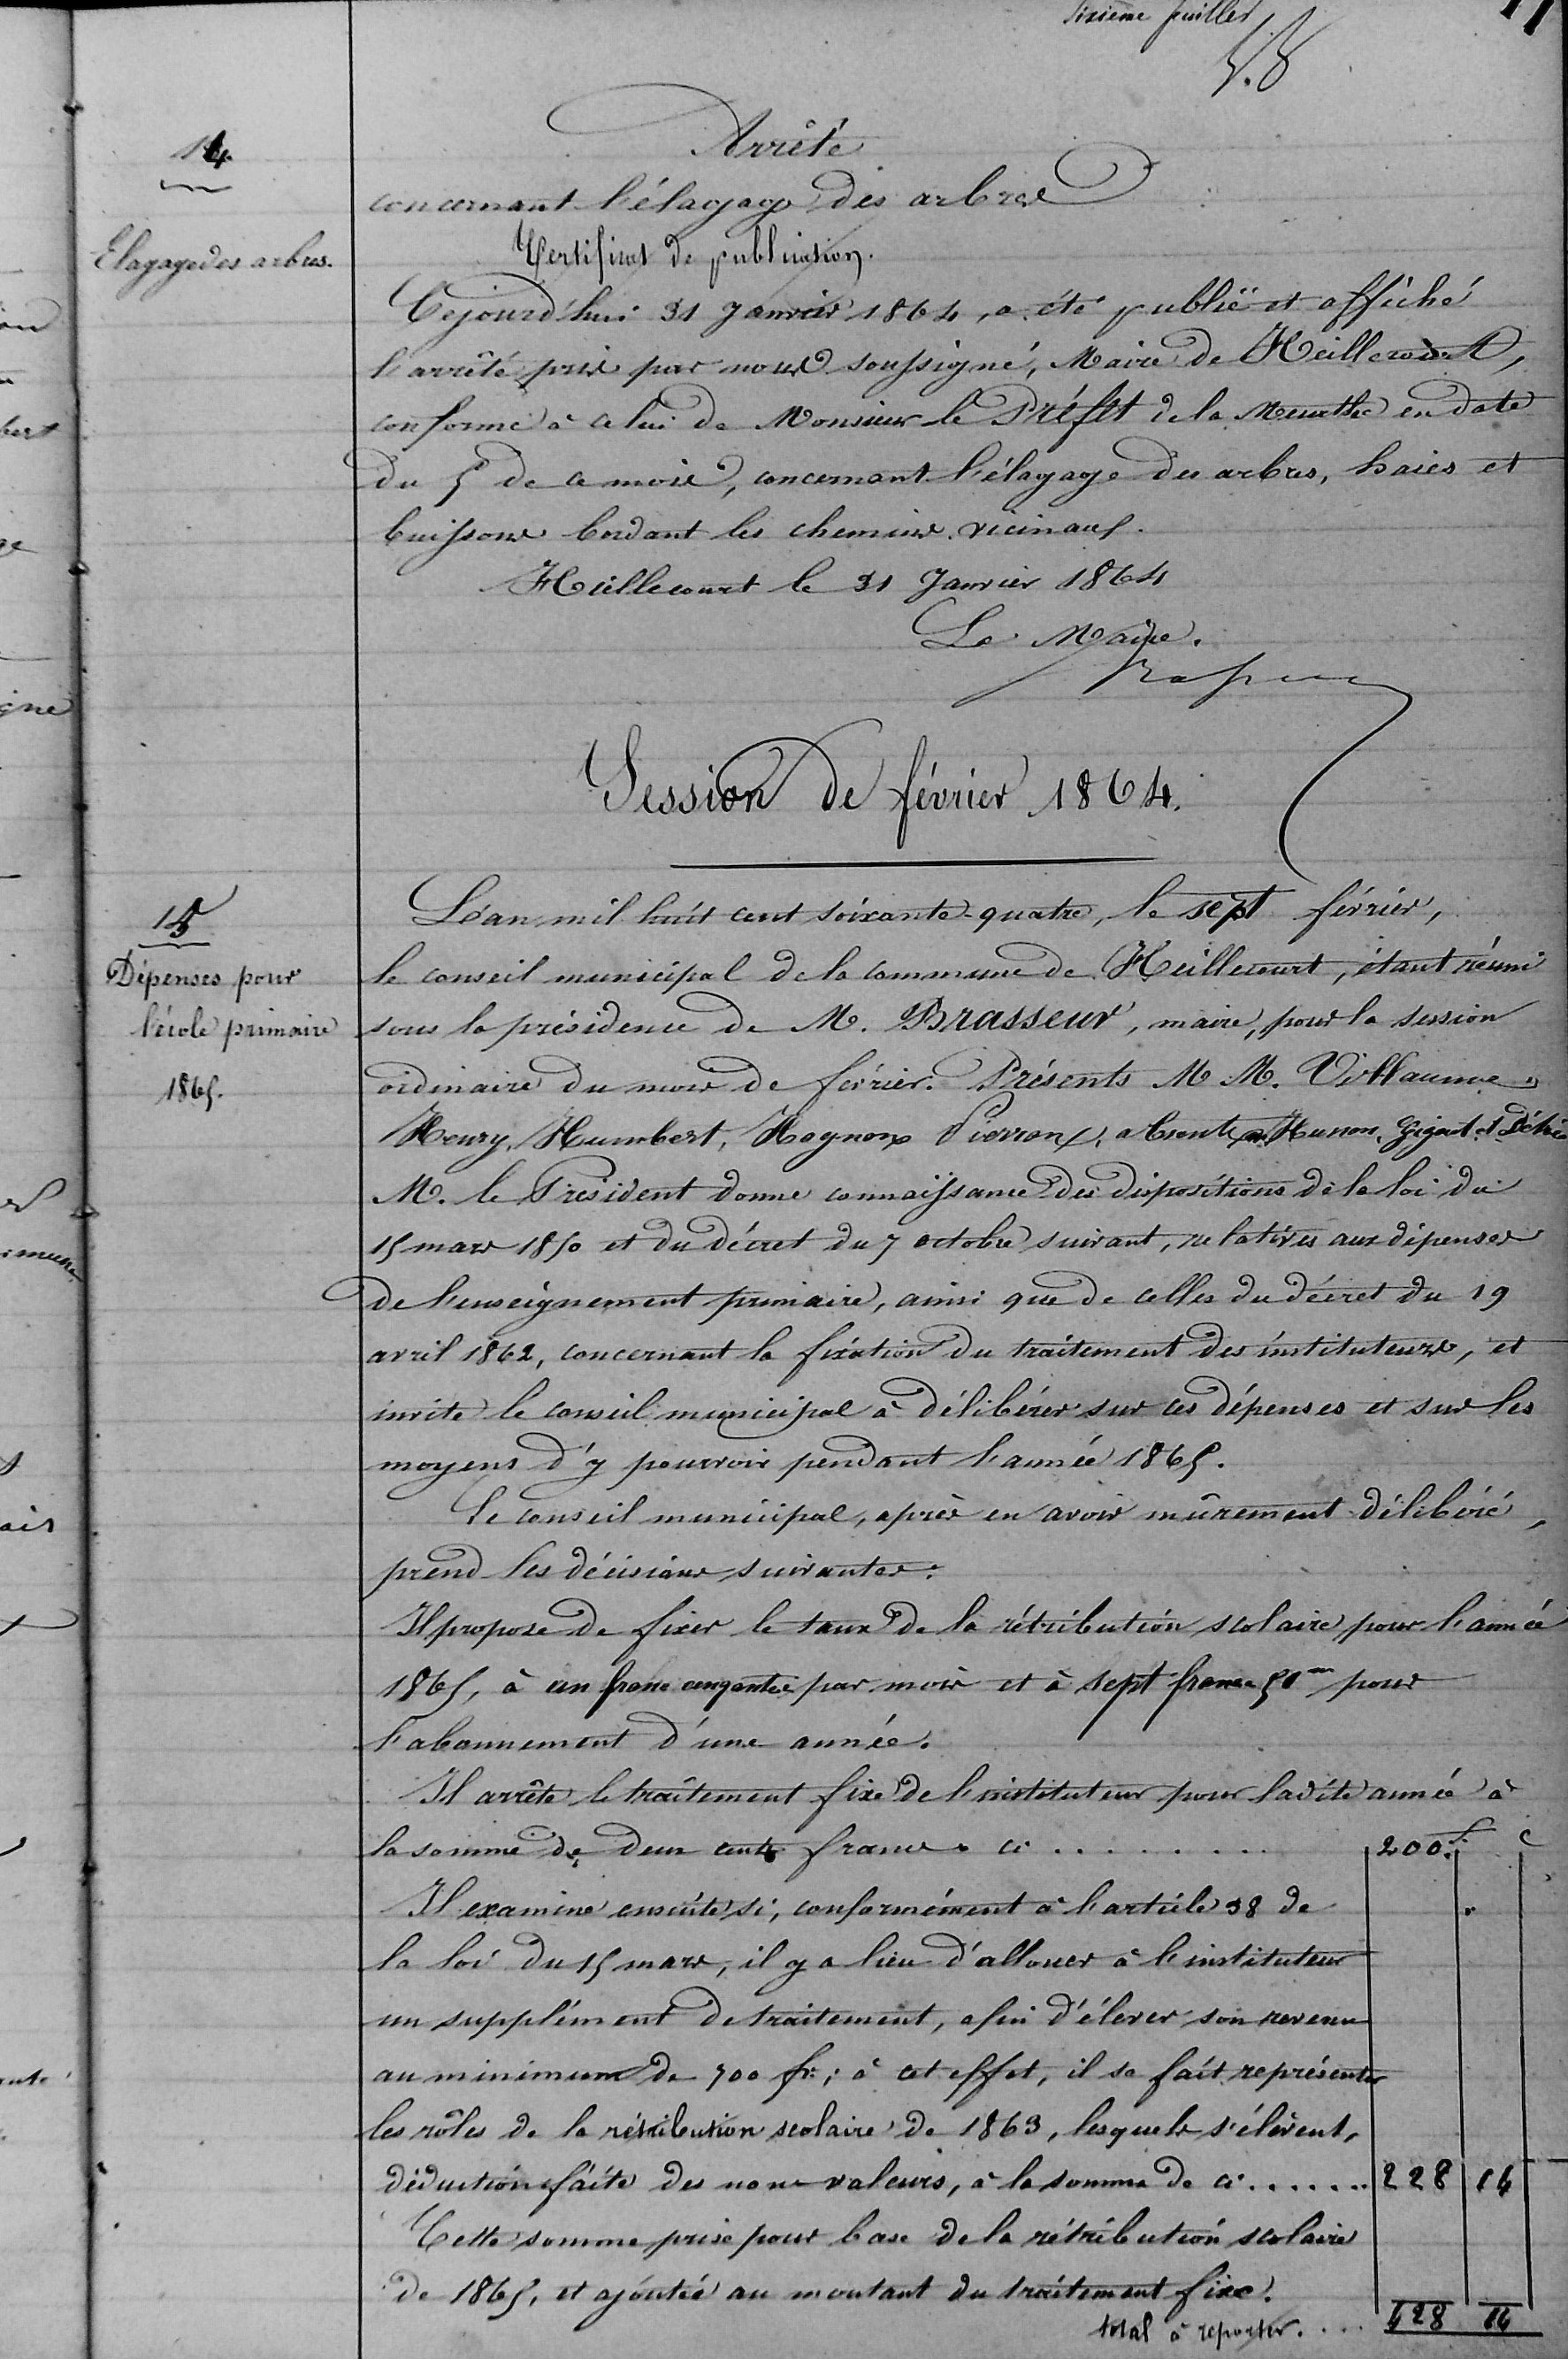 Sixième feuillet
11
14
Elagage des arbres.
Arrêté
concernant l'élagage des arbres
Certificat de publication.
Cejourd'hui 31 Janvier 1864, a été publié et affiché
l'arrêté pris par nous soussigné, Maire de Heillecourt,
conforme à celui de Monsieur le Préfet de la Meurthe en date
du 5 de ce mois, concernant l'élagage des arbres, haies et
buissons bordant les chemins vicinaux.
Heillecourt le 31 Janvier 1864
Le Maire.
Session de février 1864.
15
Dépenses pour
l'école primaire
1865.
L'an mil huit cent soixante-quatre, le sept février,
le conseil municipal de la commune de Heillecourt, étant réuni
sous la présidence de M. Brasseur, maire, pour la session
ordinaire du mois de février. Présents M M. Villaume,
Henry, Humbert, Hognon, Pierron, absents Husson, Gigout et
M. le Président donne connaissance des dispositions de la loi du
15 mars 1850 et du décret du 7 octobre suivant, relatives aux dépenses
de l'enseignement primaire, ainsi que de celles du décret du 19
avril 1862, concernant la fixation du traitement des instituteurs, et
invite le conseil municipal à délibérer sur ces dépenses et sur les
moyens d'y pourvoir pendant l'année 1865.
Le conseil municipal, après en avoir mûrement délibéré,
prend les décisions suivantes:
Il propose de fixer le taux de la rétribution scolaire pour l'année
1865, à un franc par mois et à sept francs 50 pour
l'abonnement d'une année.
Il arrête le traitement fixe de l'instituteur pour ladite année à
la somme de deux cents francs ci ........ 200 f c
Il examine ensuite si, conformément à l'article 38 de
la loi du 15 mars, il y a lieu d'allouer à l'instituteur
un supplément de traitement, afin d'élever son revenu
au minimum de 700 fr; à cet effet, il se fait représenter
les rôles de la rétribution scolaire de 1863, lesquels s'élèvent,
déduction faite des non valeurs, à la somme de ci ...... 228 14
Cette somme prise pour base de la rétribution scolaire
de 1865, et ajoutée au montant du traitement fixe.
total à reporter.... 428 14